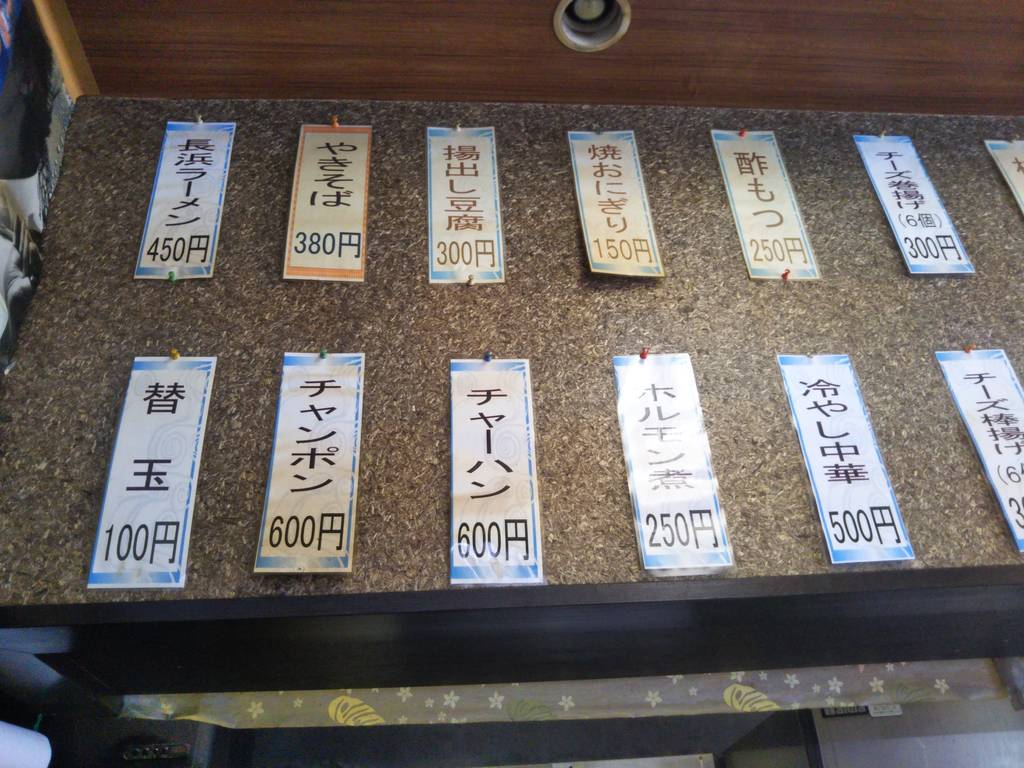 長浜ラーメン
450円
やきそば
380円
揚出し豆腐
300円
焼おにぎり
150円
酢もつ
250円
チーズ巻揚げ
(6個)
300円
替玉
100円
チャンポン
600円
チャーハン
600円
ホルモン煮
250円
冷やし中華
500円
チーズ棒揚げ
(6
3